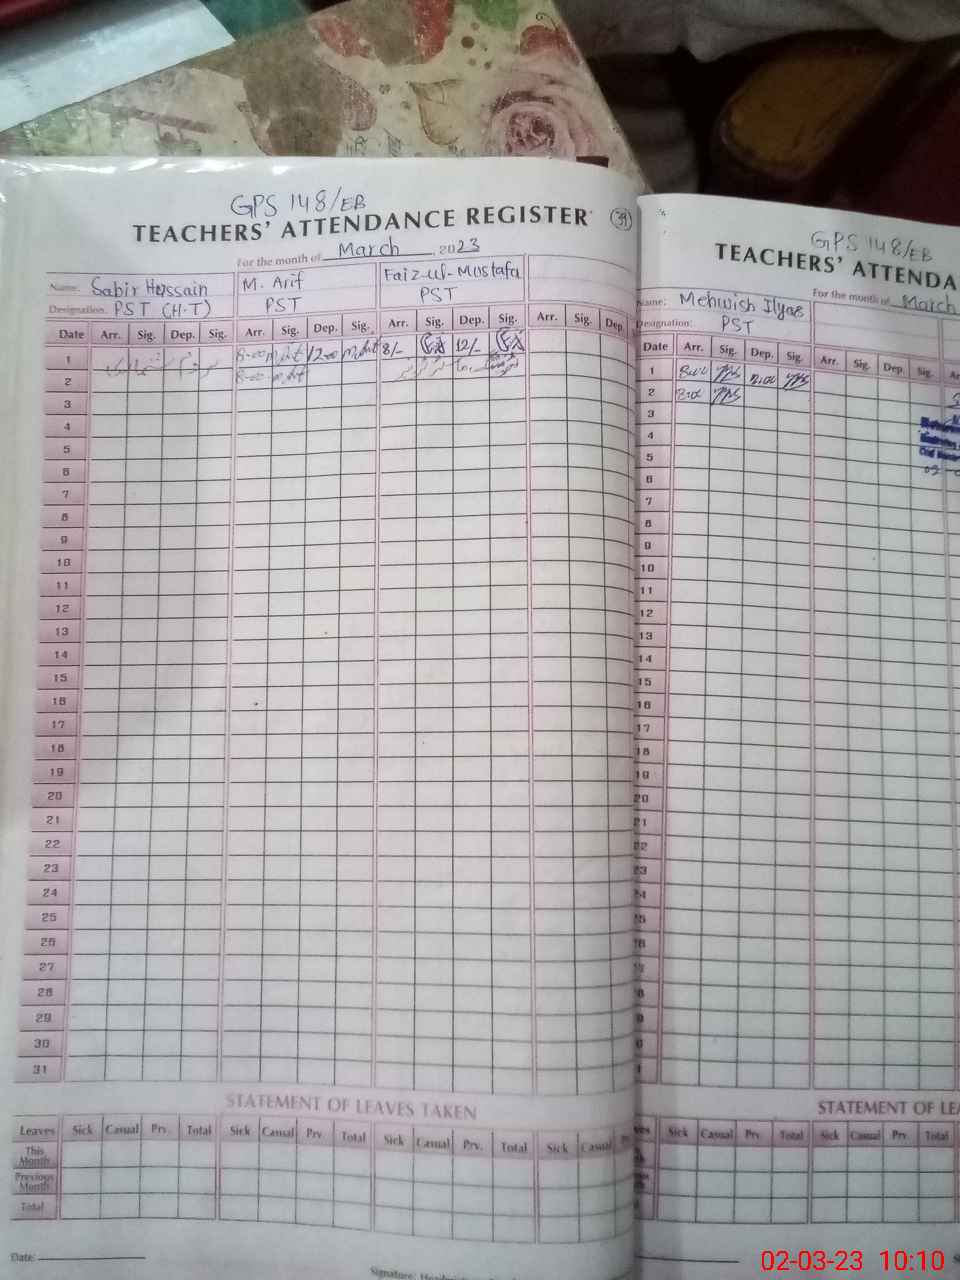 GPS 148/EB
TEACHERS' ATTENDANCE REGISTER 39
For the month of March 2023
Name: Sabir Hussain M. Arif Faiz-ul-Mustafa
Designation: PST (H.T) PST PST
Date Arr. Sig. Dep. Sig. Arr. Sig. Dep. Sig. Arr. Sig. Dep. Sig. Arr. Sig. Dep.
1 8-00 12-00 8/- 12/-
2 8-00
3
4
5
6
7
8
9
10
11
12
13
14
15
16
17
18
19
20
21
22
23
24
25
26
27
28
29
30
31
STATEMENT OF LEAVES TAKEN
Leaves Sick Casual Prv. Total Sick Casual Prv. Total Sick Casual Prv. Total Sick Casual
This Month
Previous Month
Total
Date:
Signature:
GPS 148/EB
TEACHERS' ATTENDA
For the month of March
Name: Mehwish Ilyas
Designation: PST
Date Arr. Sig. Dep. Sig. Arr. Sig. Dep. Sig. Ar
1
2
3
4
5
6
7
8
9
10
11
12
13
14
15
16
17
18
19
20
21
22
23
24
25
26
27
28
29
30
31
STATEMENT OF LE
Sick Casual Prv. Total Sick Casual Prv. Total
02-03-23 10:10